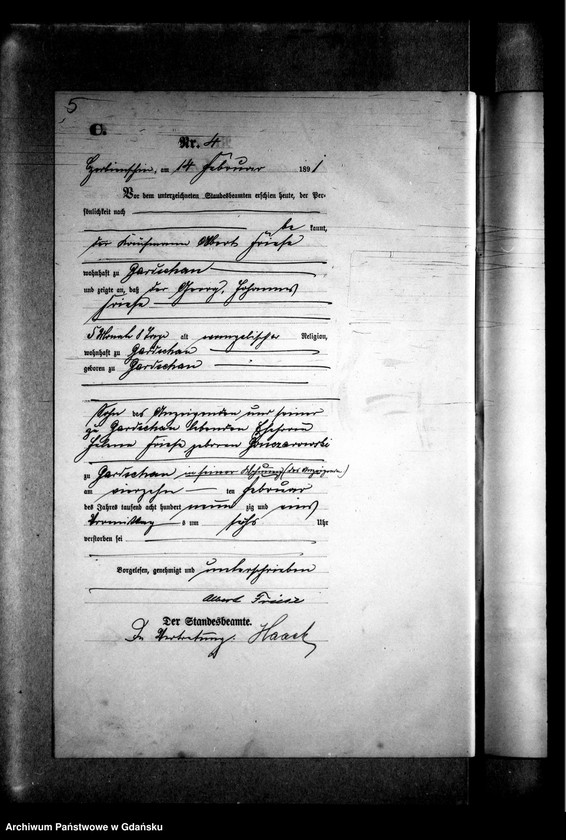 5
C.
Nr. 4
am 14 Februar 1891
Vor dem unterzeichneten Standesbeamten erschien heute, der Per-
sönlichkeit nach
be kannt,
der Kaufmann Albert Friese
wohnhaft zu Gardschau
und zeigte an, daß der Georg, Johannes
Friese
5 Monate 8 Tage alt evangelischer Religion,
wohnhaft zu Gardschau
geboren zu Gardschau
Sohn des Anzeigenden und seiner
zu Gardschau lebenden Ehefrau
Helene Friese geborenen
zu Gardschau in seiner Wohnung (des Anzeigenden)
am vierzehn ten Februar
des Jahres tausend acht hundert neun zig und eins
Vormittag s um sechs Uhr
verstorben sei
Vorgelesen, genehmigt und unterschrieben
Albert Friese
Der Standesbeamte.
In Vertretung. Haack
Archiwum Państwowe w Gdańsku